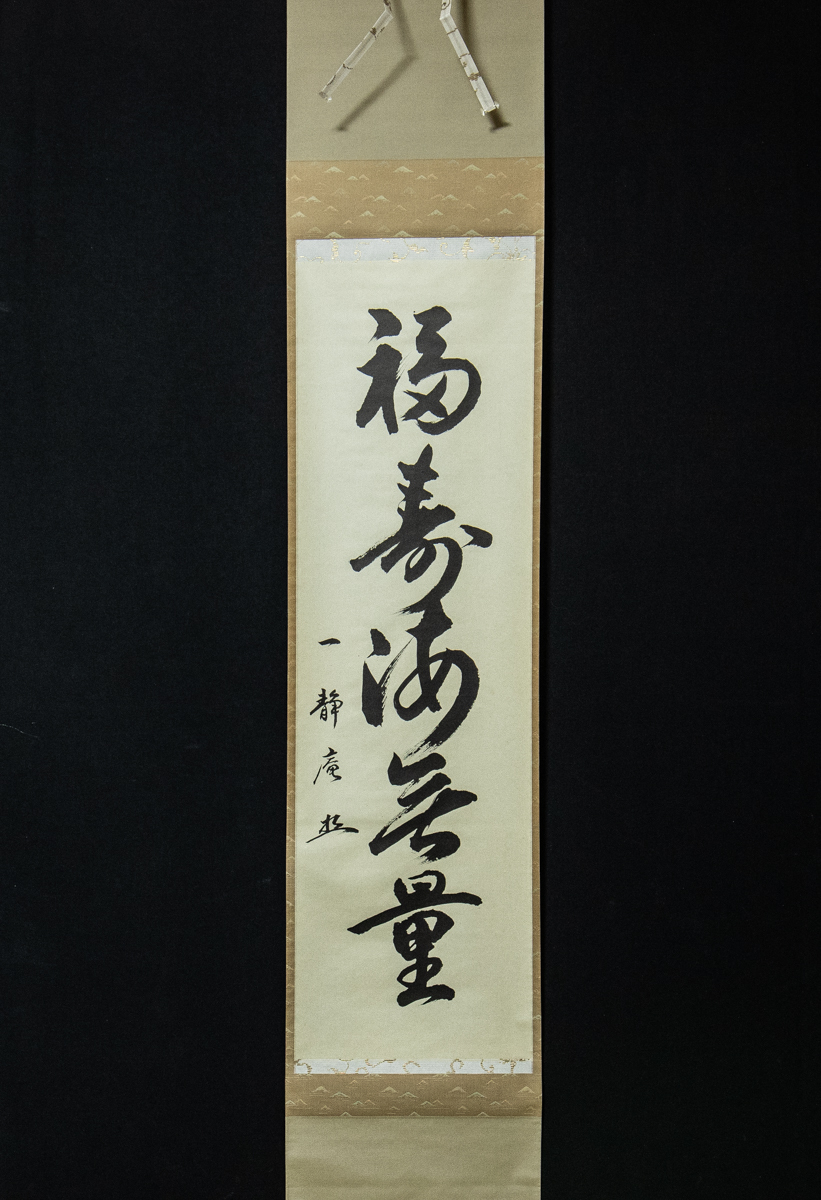 福寿海無量
一静庵